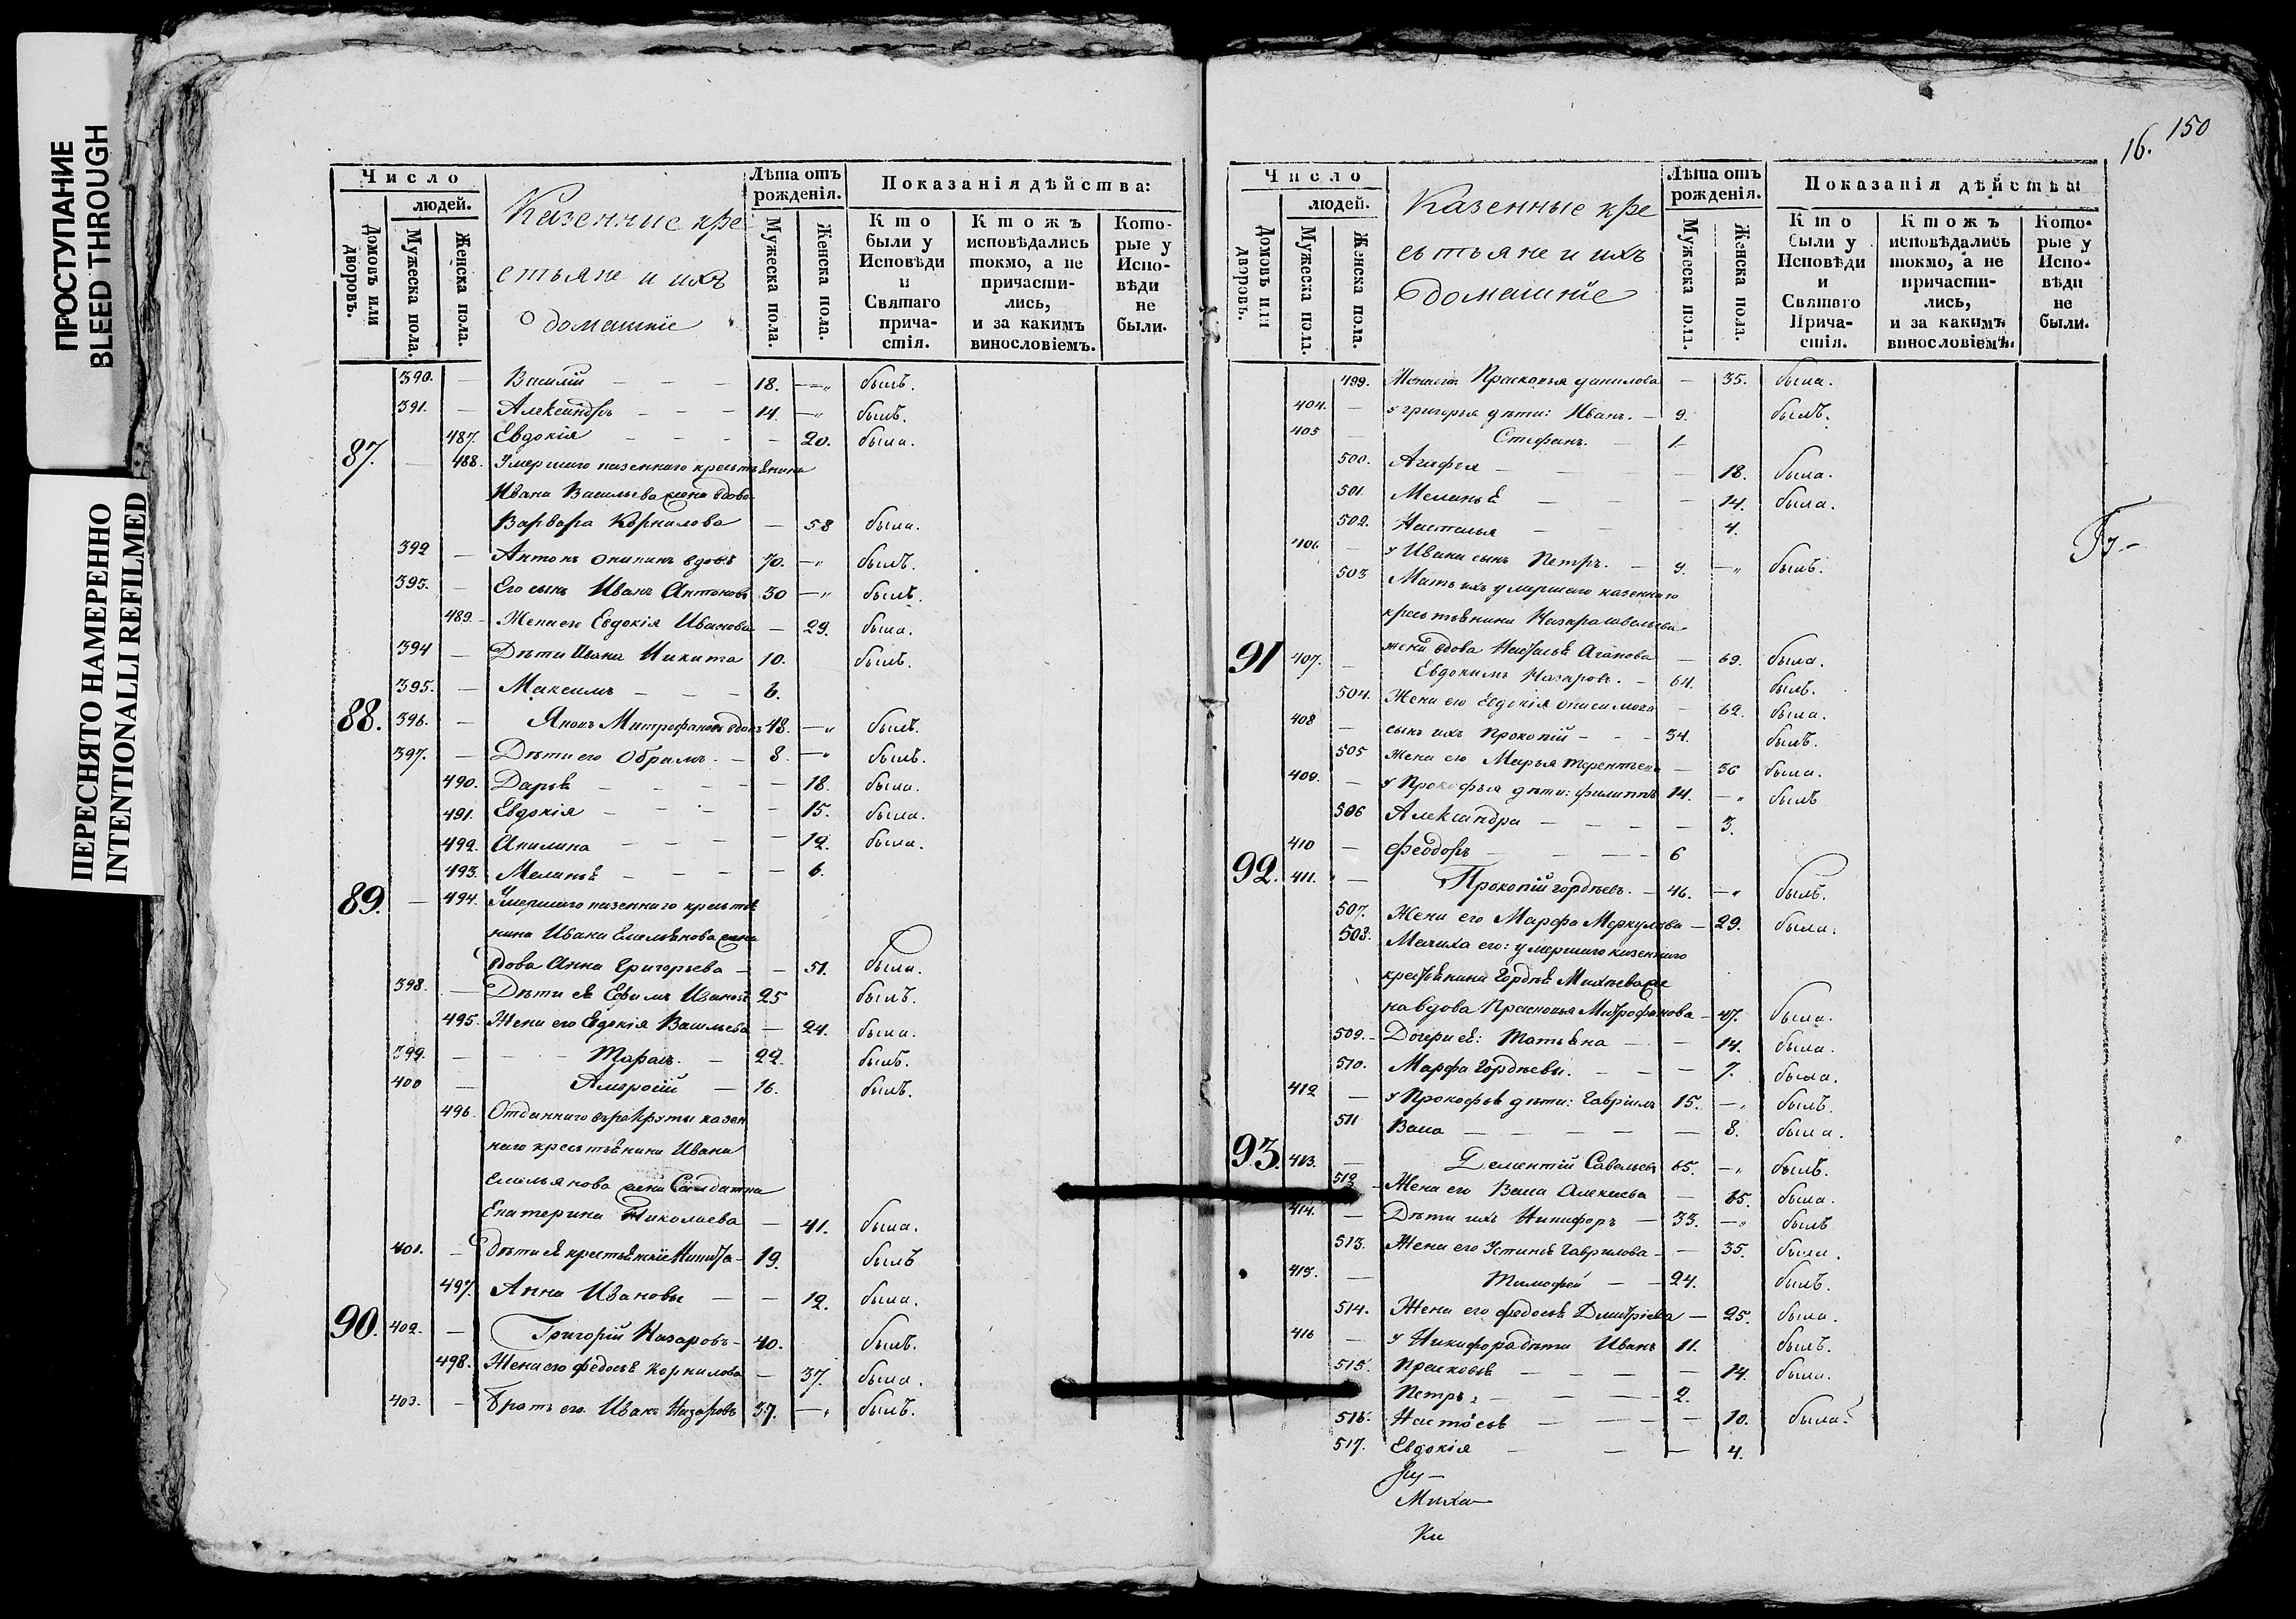 ПРОСТУПАНИЕ
BLEED THROUGH
ПЕРЕСНЯТО НАМЕРЕННО
INTENTIONALLI REFILMED
Число
людей.
Домовъ или дворовъ.
Мужеска пола.
Женска пола.
Казенные кре
стьяне и ихъ
домашніе
Лѣта отъ рожденія.
Мужеска пола.
Женска пола.
Показанія дѣйства:
Кто были у Исповѣди и Святаго причастія.
Ктожъ исповѣдались токмо, а не причастились, и за какимъ винословіемъ.
Которые у Исповѣди не были.
390. — Василій — — — 18. — былъ.
391. — Александръ — — — 14. — былъ.
487. Евдокія — — — — 20. была.
87. — 488. Умершаго казеннаго крестьянина
Ивана Васильева жена вдова
Варвара Корнилова — 58 была.
392 — Антонъ вдовъ 70. — былъ.
393. — Его сынъ Иванъ Антоновъ 30 — былъ.
489. Жена его Евдокія Иванова — 29. была.
394 — Дѣти Ивана Никита 10. былъ.
395. — Максимъ — — — 6.
88. 396. — Митрофановъ вдовъ 48. — былъ.
397. — Дѣти его Обрамъ. — 8. — былъ.
490. Дарья — — — — 18. была.
491. Евдокія — — — — 15. была.
492. Акилина — — — — 12. была.
493. Меланья — — — — 6.
89. — 494. Умершаго казеннаго крестья
нина Ивана Емельянова жена
вдова Анна Григорьева — — 51. была.
398. — Дѣти ея Ефимъ Ивановъ 25 былъ.
495. Жена его Евдокія Васильева — 24. была.
399. — — — Тарасъ. — 22. былъ.
400 — Амвросій — 16. былъ.
496. Отданнаго въ рекруты казен
наго крестьянина Ивана
Емельянова жена Салдатка
Екатерина Николаева — 41. была.
401. — Дѣти ея крестьянскіе Никита — 19. былъ
497. Анна Ивановы — — 12. была.
90. 402. — Григорій Назаровъ — 40. былъ.
498. Жена его Федосья Корнилова — 37. была.
403. — Братъ его Иванъ Назаровъ 37. — былъ.
16. 150
Число
людей.
Домовъ или дворовъ.
Мужеска пола.
Женска пола.
Казенные кре
стьяне и ихъ
домашніе
Лѣта отъ рожденія.
Мужеска пола.
Женска пола.
Показанія дѣйства
Кто были у Исповѣди и Святаго Причастія.
Ктожъ исповѣдались токмо, а не причастились, и за какимъ винословіемъ.
Которые у Исповѣди не были.
499. Жена его Прасковья Данилова — 35. была.
404. — у Григорья дѣти: Иванъ. — 9. былъ.
405 — Стефанъ. — 1
500. Агафья — — 18. была.
501. Меланья — — 14. была.
502. Наталья — — 4.
406. — у Ивана сынъ Петръ. — 9. — былъ.
503 Мать ихъ умершаго казеннаго
крестьянина Назара Савельева
жена вдова Настасья Агапова — 69. была.
91 407. — Евдокимъ Назаровъ. — 64. былъ.
504. Жена его Евдокія — 62. была.
408 — сынъ ихъ Прокопій — — 34. былъ.
505 Жена его Марья Терентьева — 36 была.
409. — у Прокофья дѣти: Филиппъ 14. — былъ
506 Александра — — — — 3.
410 — Феодоръ — — — 6
92. 411. — Прокопій Гордѣевъ. — 46. — былъ.
507. Жена его Марфа Меркулова — 29. была.
508. Мачиха его: умершаго казеннаго
крестьянина Гордѣя Михѣева же
на вдова Прасковья Митрофанова — 47. была.
509. Дочери ея: Татьяна — — 14. была.
510. Марфа Гордѣевы. — — — 7. была.
412 — у Прокофья дѣти: Гавріилъ 15. — былъ.
511 Васа — — — — — 8. была.
93. 413. — Дементій Савельевъ 65. — былъ.
512 Жена его Васа Алексѣева — 65. была.
414. — Дѣти ихъ Никифоръ — 33. — былъ
513. Жена его Устинья Гаврилова — — 35. была.
415. — Тимофей — — 24. былъ.
514. Жена его Федосья Дмитріева — 25. была.
416 — у Никифора дѣти Иванъ 11. былъ.
515. Прасковья — — — — 14. была.
Петръ: — — — — 2.
516. Настасья — — — — 10. была.
517. Евдокія — — — 4.
Миха